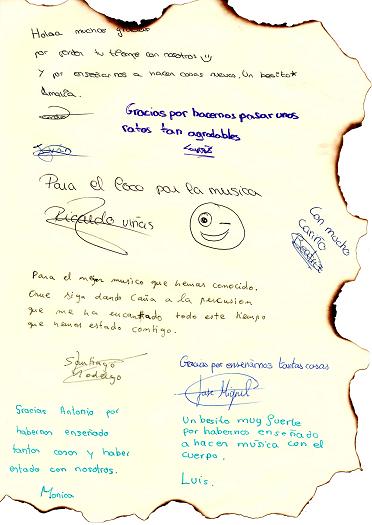 Holaa muchas gracias
por perder tu tiempo con nosotros
Y por enseñarnos a hacer cosas nuevas. Un besito*
Amalia.
Gracias por hacernos pasar unos
ratos tan agradables
Para el Loco por la musica
Ricardo viñas
Con mucho
cariño
Beatriz
Para el mejor musico que hemos conocido.
Que siga dando Caña a la percusion
que me ha encantado todo este tiempo
que hemos estado contigo.
Santiago
Rodrigo
Gracias por enseñarnos tantas cosas
Jose Miguel
Gracias Antonio por
habernos enseñado
tantas cosas y haber
estado con nosotros.
Monica
Un besito muy fuerte
por habernos enseñado
a hacer música con el
cuerpo.
Luis.